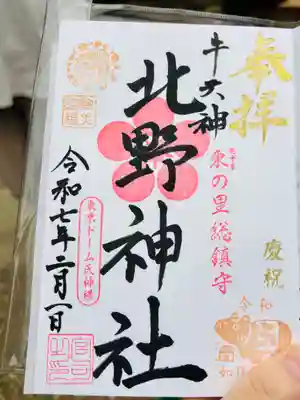 奉拝
牛天神
東の里総鎮守
慶祝
令和
北野神社
東京ドーム氏神様
令和七年二月一日